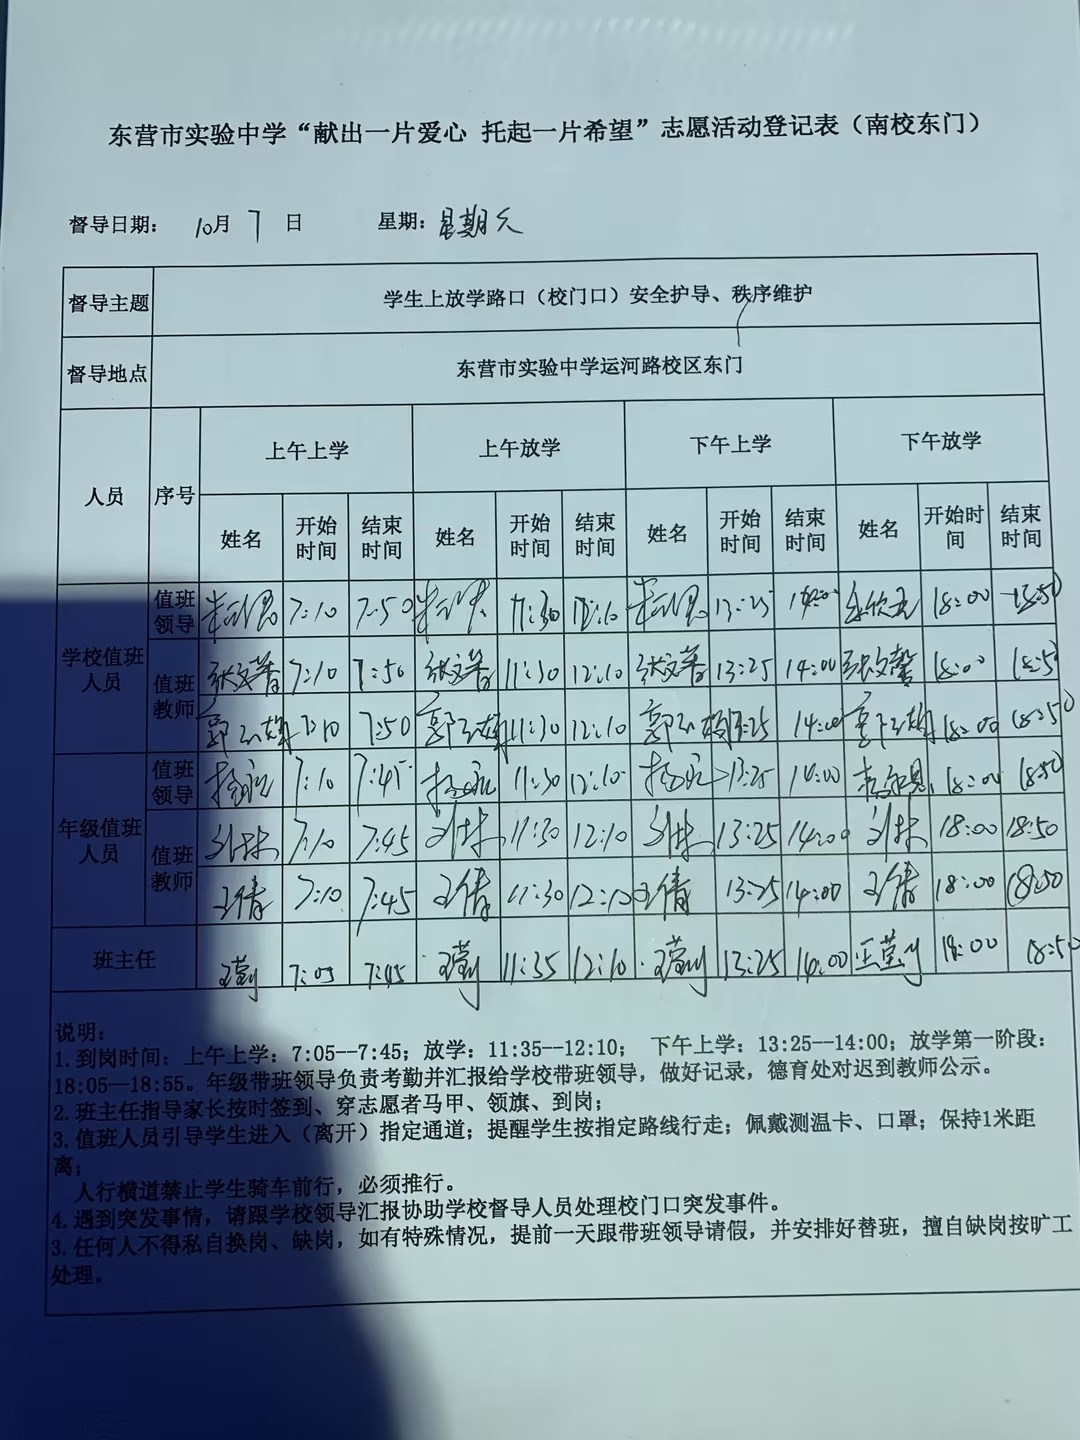 东营市实验中学“献出一片爱心 托起一片希望”志愿活动登记表（南校东门）
督导日期： 10月 7 日 星期：星期天
督导主题 学生上放学路口（校门口）安全护导、秩序维护
督导地点 东营市实验中学运河路校区东门
人员 序号 上午上学 上午放学 下午上学 下午放学
姓名 开始时间 结束时间 姓名 开始时间 结束时间 姓名 开始时间 结束时间 姓名 开始时间 结束时间
学校值班人员 值班领导 7:10 7:50 11:30 12:10 13:25 14:00 18:00 18:50
值班教师 张文馨 7:10 7:50 张文馨 11:30 12:10 张文馨 13:25 14:00 张文馨 18:00 18:50
郭 7:10 7:50 郭 11:30 12:10 郭 13:25 14:00 郭 18:00 18:50
年级值班人员 值班领导 7:10 7:45 11:30 12:10 13:25 14:00 18:00 18:50
值班教师 刘林 7:10 7:45 刘林 11:30 12:10 刘林 13:25 14:00 刘林 18:00 18:50
王倩 7:10 7:45 王倩 11:30 12:10 王倩 13:25 14:00 王倩 18:00 18:50
班主任 王 7:05 7:45 王 11:35 12:10 王 13:25 14:00 王 18:00 18:50
说明：
1. 到岗时间：上午上学：7:05--7:45；放学：11:35--12:10； 下午上学：13:25--14:00；放学第一阶段：
18:05—18:55。年级带班领导负责考勤并汇报给学校带班领导，做好记录，德育处对迟到教师公示。
2. 班主任指导家长按时签到、穿志愿者马甲、领旗、到岗；
3. 值班人员引导学生进入（离开）指定通道；提醒学生按指定路线行走；佩戴测温卡、口罩；保持1米距
离；
人行横道禁止学生骑车前行，必须推行。
4. 遇到突发事情，请跟学校领导汇报协助学校督导人员处理校门口突发事件。
3. 任何人不得私自换岗、缺岗，如有特殊情况，提前一天跟带班领导请假，并安排好替班，擅自缺岗按旷工
处理。